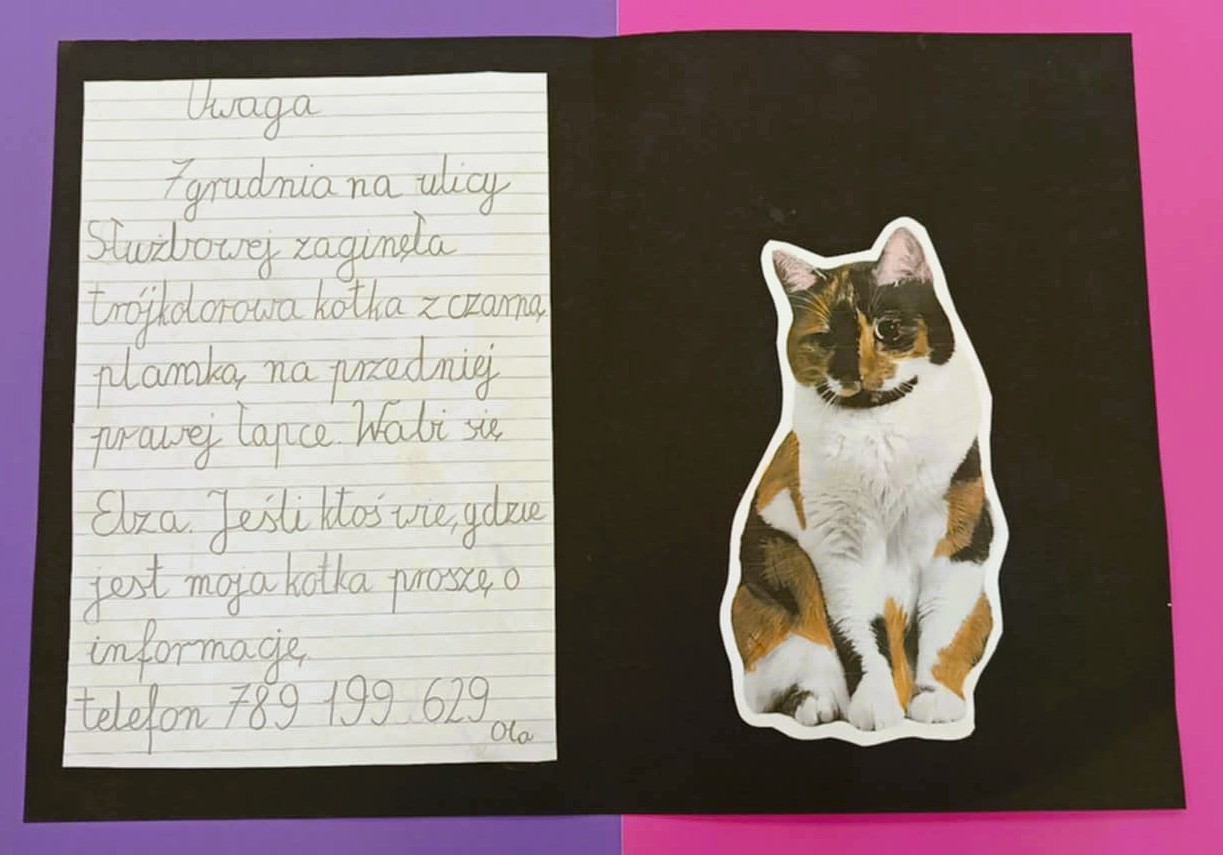 Uwaga
7 grudnia na ulicy
Służbowej zaginęła
trójkolorowa kotka z czarną
plamką na przedniej
prawej łapce. Wabi się
Elza. Jeśli ktoś wie, gdzie
jest moja kotka proszę o
informację.
telefon 789 199 629
Ola